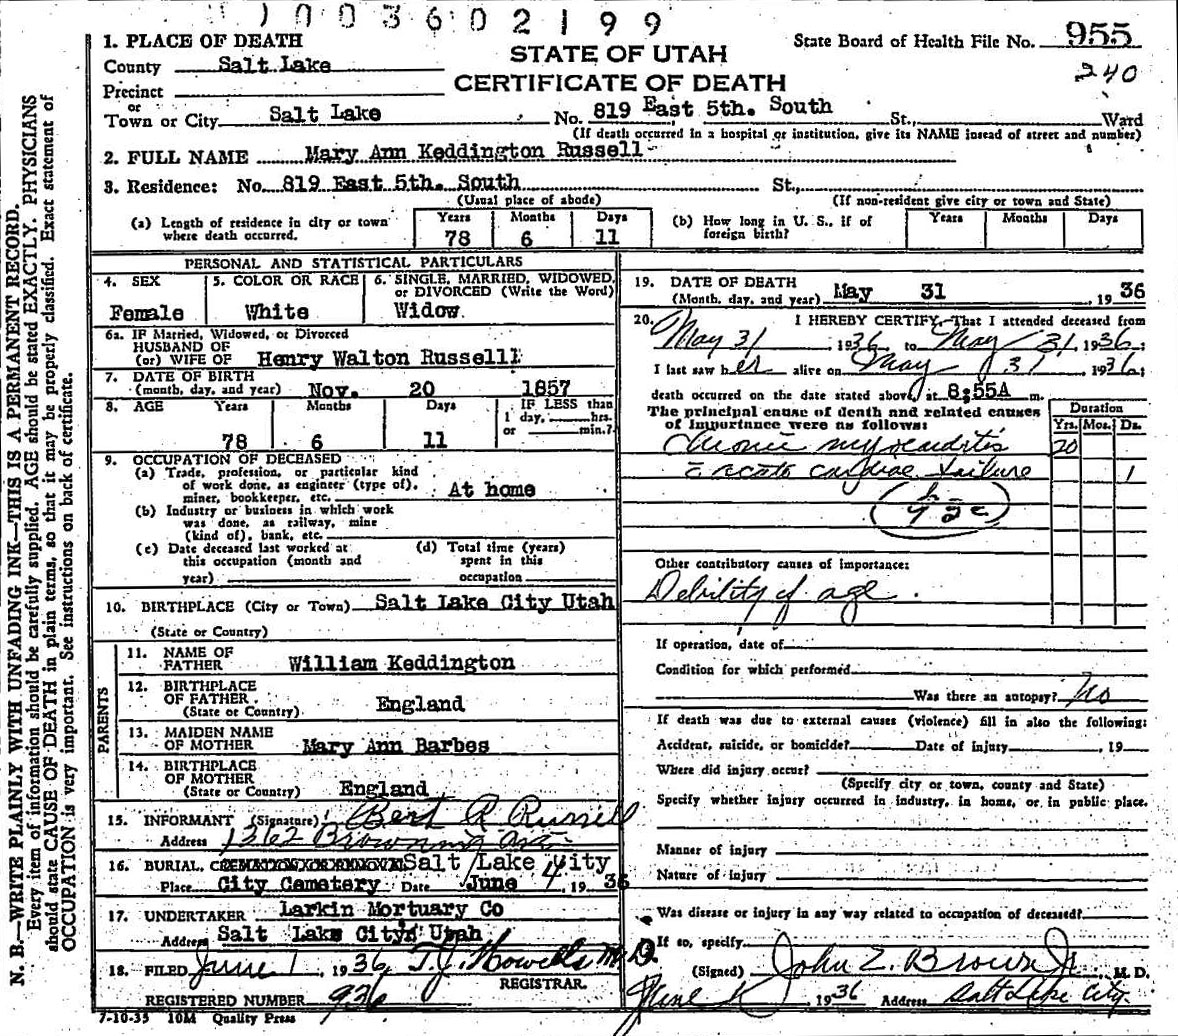 1003602199
1. PLACE OF DEATH
STATE OF UTAH
CERTIFICATE OF DEATH
State Board of Health File No. 955
240
County Salt Lake
Precinct
or
Town or City Salt Lake No. 819 East 5th. South St., Ward
(If death occurred in a hospital or institution, give its NAME instead of street and number)
2. FULL NAME Mary Ann Keddington Russell
3. Residence: No. 819 East 5th. South St.,
(Usual place of abode) (If non-resident give city or town and State)
(a) Length of residence in city or town where death occurred. Years 78 Months 6 Days 11
(b) How long in U. S., if of foreign birth? Years Months Days
PERSONAL AND STATISTICAL PARTICULARS
4. SEX Female
5. COLOR OR RACE White
6. SINGLE, MARRIED, WIDOWED, or DIVORCED (Write the Word) Widow.
6a. IF Married, Widowed, or Divorced
HUSBAND OF
(or) WIFE OF Henry Walton Russelll
7. DATE OF BIRTH
(month, day, and year) Nov. 20 1857
8. AGE Years 78 Months 6 Days 11
IF LESS than
1 day, hrs.
or min.?
9. OCCUPATION OF DECEASED
(a) Trade, profession, or particular kind
of work done, as engineer (type of),
miner, bookkeeper, etc. At home
(b) Industry or business in which work
was done, as railway, mine
(kind of), bank, etc.
(c) Date deceased last worked at
this occupation (month and
year)
(d) Total time (years)
spent in this
occupation
10. BIRTHPLACE (City or Town) Salt Lake City Utah
(State or Country)
PARENTS
11. NAME OF
FATHER William Keddington
12. BIRTHPLACE
OF FATHER
(State or Country) England
13. MAIDEN NAME
OF MOTHER Mary Ann Barbes
14. BIRTHPLACE
OF MOTHER
(State or Country) England
15. INFORMANT (Signature) Bert R Russell
Address 1362 Browning Ave
16. BURIAL, Salt Lake City
Place City Cemetery Date June 4, 19 36
17. UNDERTAKER Larkin Mortuary Co
Address Salt Lake City, Utah
18. FILED June 1, 1936 T. J. Howells M.D.
REGISTRAR.
REGISTERED NUMBER 936
7-10-35 10M Quality Press
19. DATE OF DEATH
(Month, day, and year) May 31, 1936
20. I HEREBY CERTIFY, That I attended deceased from
May 31 1936 to May 31, 1936;
I last saw her alive on May 31 1936;
death occurred on the date stated above, at 8:55A m.
The principal cause of death and related causes
of importance were as follows:
Duration
Yrs. Mos. Ds.
Chronic myocarditis 20
c acute cardiac failure 1
Other contributory causes of importance:
Debility of age.
If operation, date of
Condition for which performed
Was there an autopsy? No
If death was due to external causes (violence) fill in also the following:
Accident, suicide, or homicide? Date of injury , 19
Where did injury occur?
(Specify city or town, county and State)
Specify whether injury occurred in industry, in home, or in public place.
Manner of injury
Nature of injury
Was disease or injury in any way related to occupation of deceased?
If so, specify
(Signed) John Z. Brown Jr, M. D.
June 1936 Address Salt Lake City.
N. B.—WRITE PLAINLY WITH UNFADING INK—THIS IS A PERMANENT RECORD.
Every item of information should be carefully supplied. AGE should be stated EXACTLY. PHYSICIANS
should state CAUSE OF DEATH in plain terms, so that it may be properly classified. Exact statement of
OCCUPATION is very important. See instructions on back of certificate.